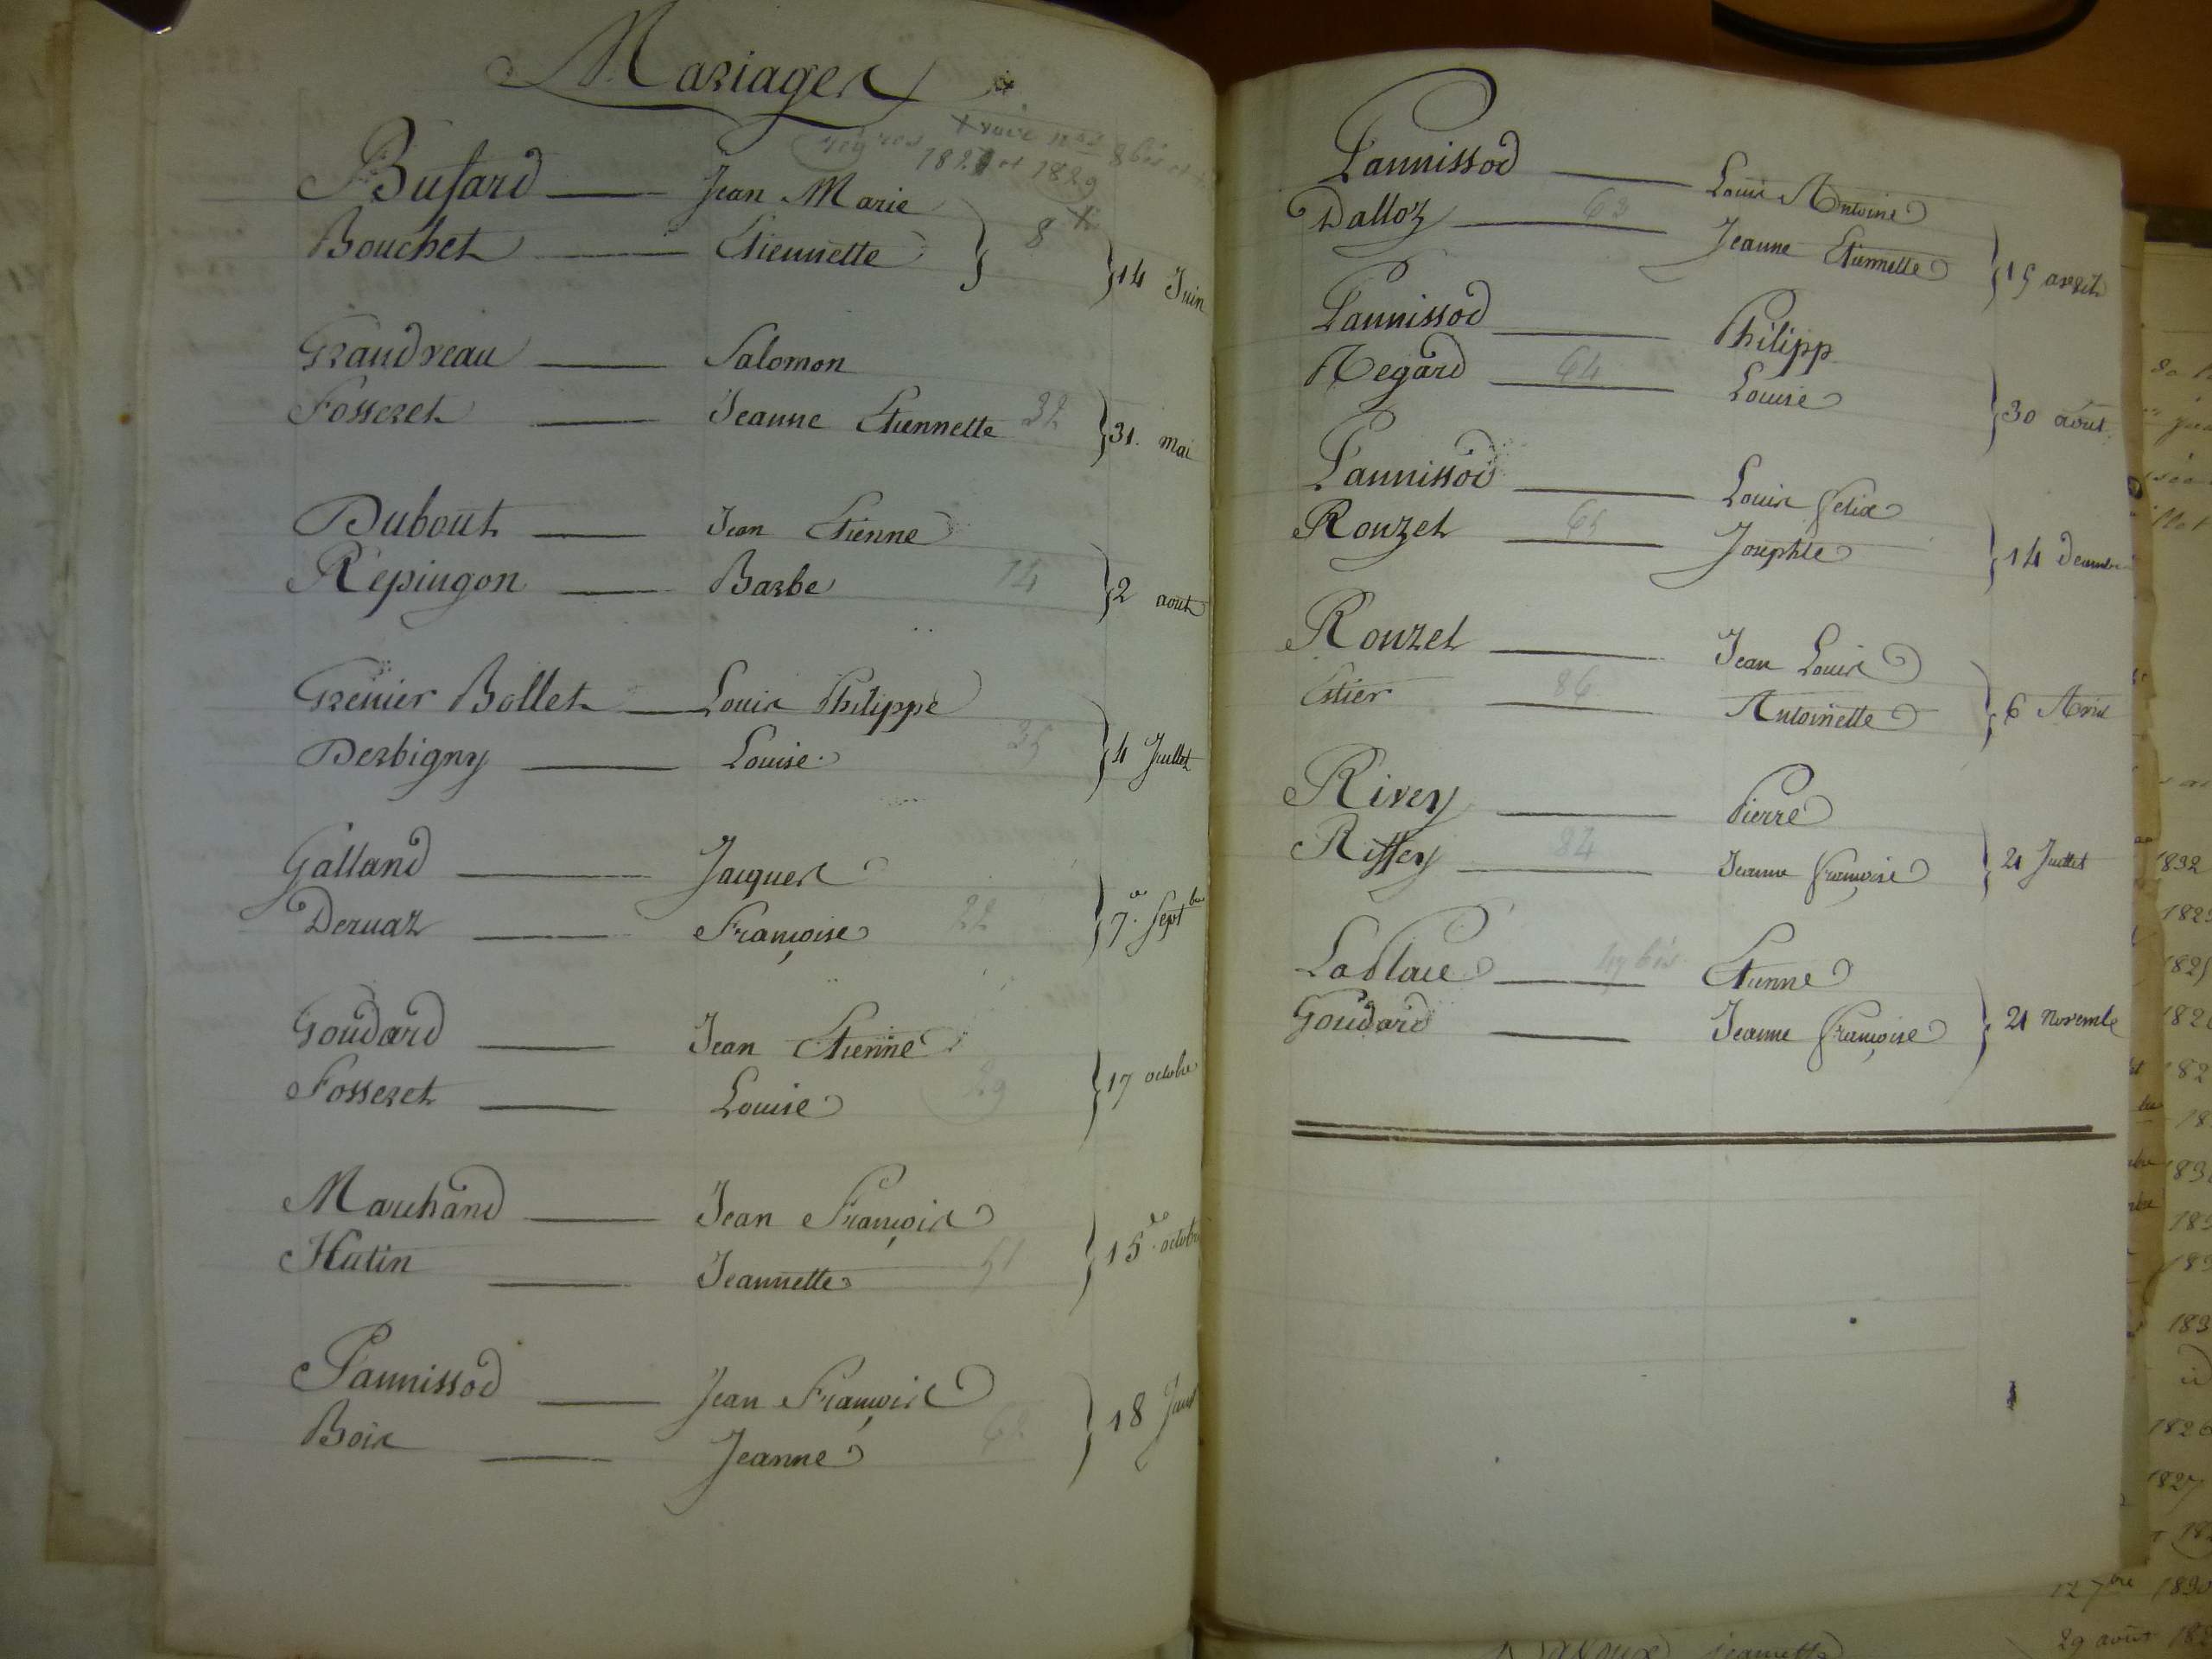 Mariages
1829
Bufard — Jean Marie
Bouchet — Etiennette } 8 } 14 Juin
Grandreau — Salomon
Fosseret — Jeanne Etiennette 32 } 31. mai
Dubout — Jean Etienne
Repingon — Barbe 14 } 2 aout
Grenier Bollet — Louis Philippe
Derbigny — Louise 35 } 4 Juillet
Galland — Jacques
Deruaz — Françoise 22 } 7. Sept
Goudard — Jean Etienne
Fosseret — Louise 29 } 17 octobre
Marchand — Jean François
Hutin — Jeannette 51 } 15 octobre
Pannissod — Jean François
Bois — Jeanne 62 } 18
Pannissod — Louis Antoine
Dalloz — 63 Jeanne Etiennette } 15 avril
Pannissod — Philipp
Regard — 64 Louise } 30 aout
Pannissod — Louis Felix
Rouzet — 65 Josephte } 14 Decembre
Rouzet — Jean Louis
Estier — 86 Antoinette } 6 Avril
Rivey — Pierre
Riffey — 84 Jeanne Françoise } 21 Juillet
LaPlace — bis Etienne
Goudard — Jeanne Françoise } 21 Novembe
1832
1826
1827
29 août